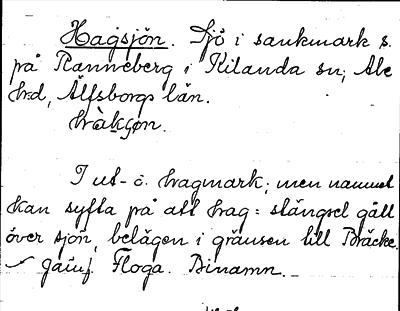 Hagsjön. Sjö i sankmark s.
på Ranneberg i Kilanda sn, Ale
hd, Älfsborgs län.
hràkʃøn.
I ut- o. hagmark; men namnet
kan syfta på att hag = stängsel gått
över sjön, belägen i gränsen till Bräcke.
jämf. Floga. Binamn.